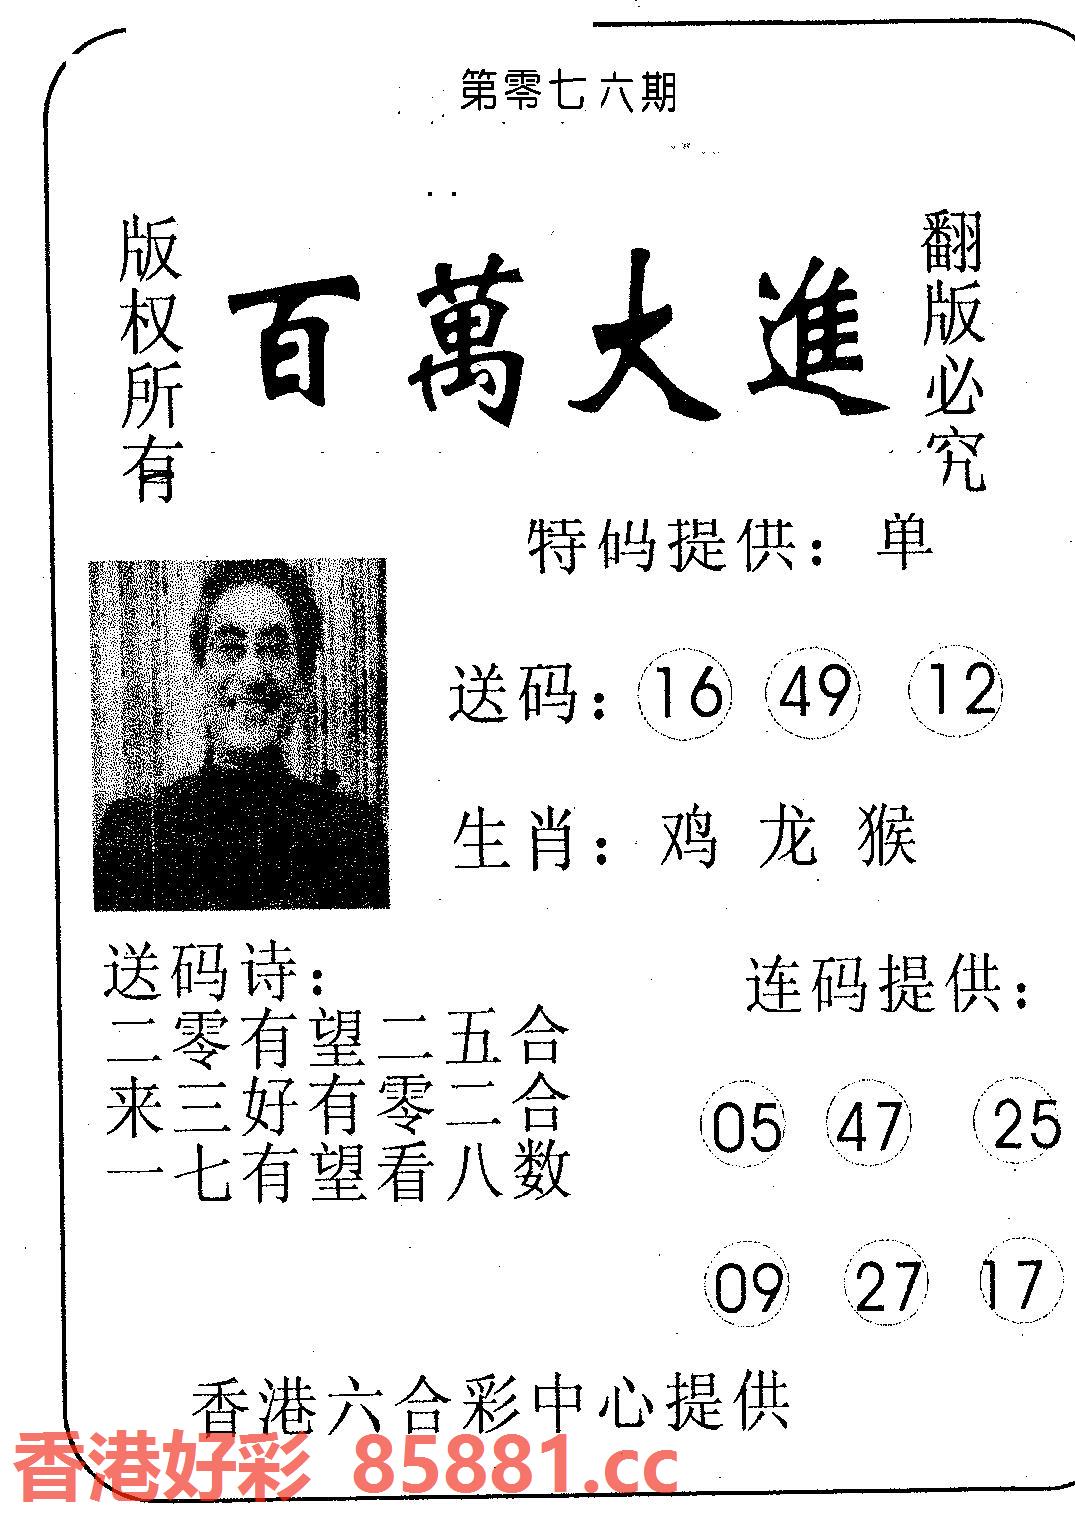 第零七六期
版权所有
百萬大進
翻版必究
特码提供：单
送码：16 49 12
生肖：鸡 龙 猴
送码诗：
二零有望二五合
来三好有零二合
一七有望看八数
连码提供：
05 47 25
09 27 17
香港六合彩中心提供
香港好彩 85881.cc